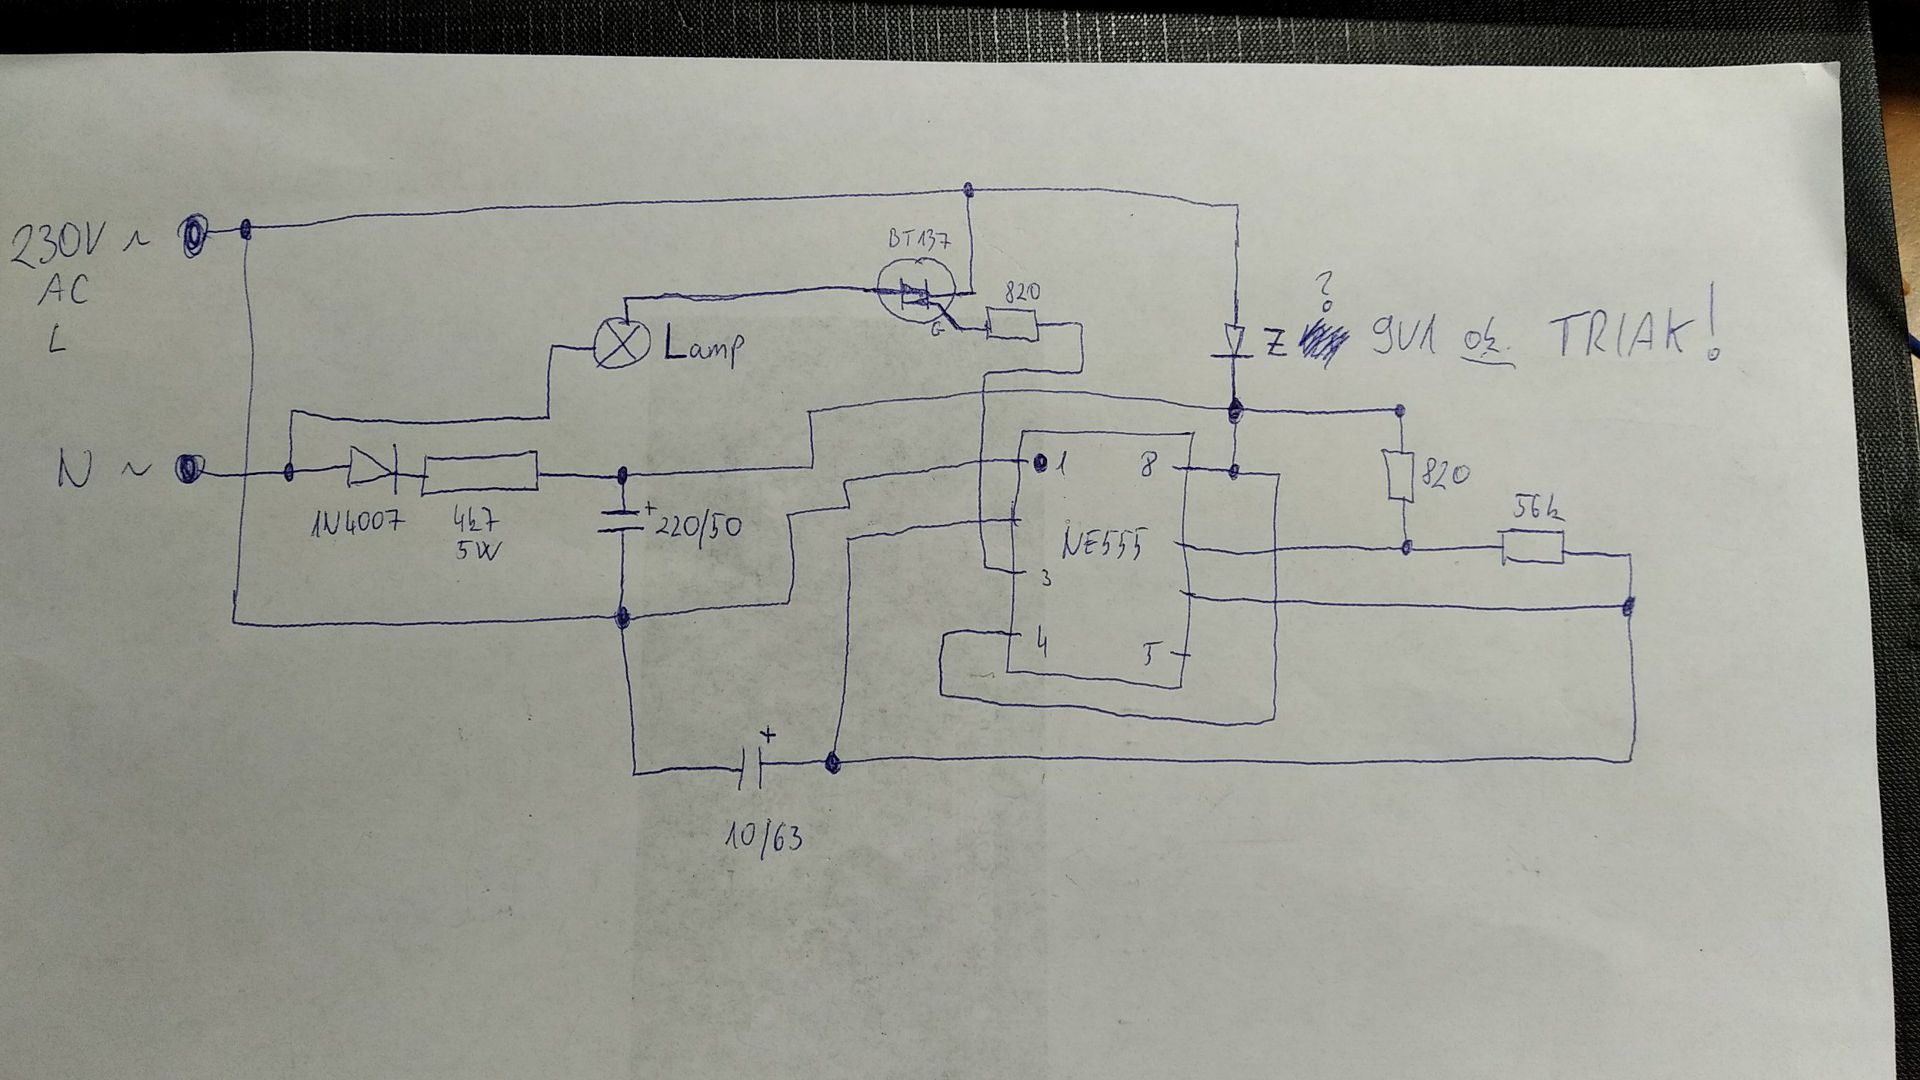 230V ~
AC
L
N ~
BT137
G
820
Lamp
?
Z 9V1 ok. TRIAK!
1N4007
4k7
5W
+
220/50
1
8
NE555
3
4
5
820
56k
+
10/63